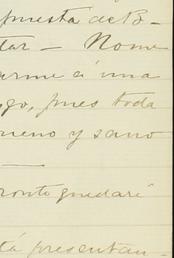 puesta de B-
tar - Nome
arme á una
go, pues toda
meno y sano
ronto quedaré
tá presentan-